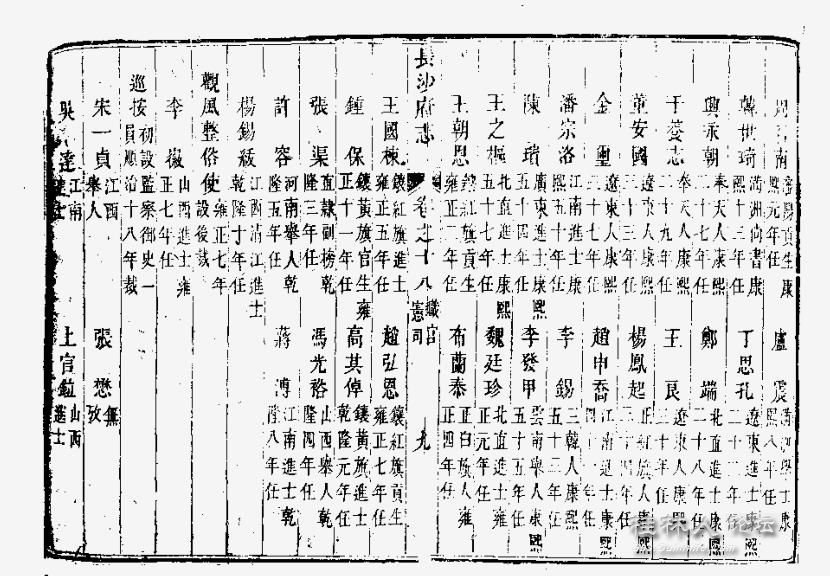 南 瀋陽貢生康熙元年任 盧震 學士康熙八年任
韓世琦 滿洲尚書康熙十三年任 丁思孔 遼東進士康熙二十二年任
興永朝 奉天人康熙二十七年任 鄭端 北直進士康熙二十八年任
于養志 奉天人康熙二十九年任 王艮 遼東人康熙三十年任
董安國 遼東人康熙三十三年任 楊鳳起 正紅旗人康熙三十四年任
金璽 遼東人康熙三十七年任 趙申喬 江南進士康熙四十一年任
潘宗洛 江南進士康熙四十五年任 李錫 三韓人康熙五十二年任
陳璸 廣東進士康熙五十四年任 李發甲 雲南舉人康熙五十五年任
王之樞 北直進士康熙五十七年任 魏廷珍 北直進士雍正元年任
王朝恩 鑲紅旗貢生雍正二年任 布蘭泰 正白旗人雍正四年任
長沙府志 卷之十八 職官 憲司 九
王國棟 鑲紅旗進士雍正五年任 趙弘恩 鑲紅旗貢生雍正七年任
鍾保 鑲黃旗官生雍正十一年任 高其倬 鑲黃旗進士乾隆元年任
張渠 直隸副榜乾隆三年任 馮光裕 山西舉人乾隆四年任
許容 河南舉人乾隆五年任 蔣溥 江南進士乾隆八年任
楊錫紱 江西清江進士乾隆十年任
觀風整俗使 雍正七年設後裁
李徽 山西進士雍正七年任
巡按 初設監察御史一員順治十八年裁
宋一貞 江西舉人 張懋 無攷
吳達 江南進士 上官鉝 山西進士
桂林人论坛